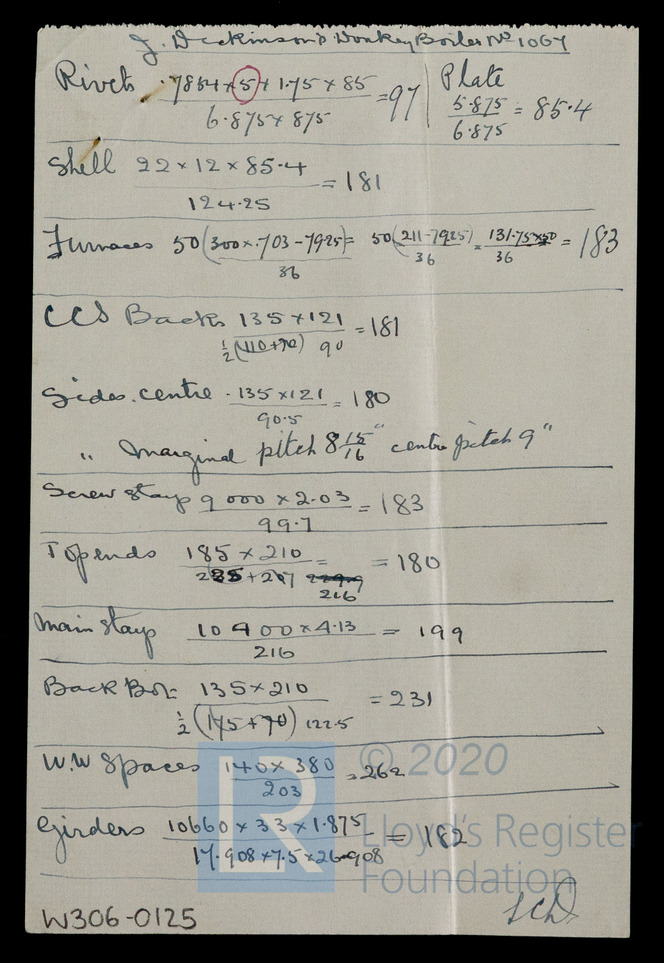 J. Dickinson's Donkey Boiler No 1067
Rivets .7854 x 5 x 1.75 x 85 / 6.875 x 875 = 97 | Plate 5.875 / 6.875 = 85.4
Shell 22 x 12 x 85.4 / 124.25 = 181
Furnaces 50(300 x .703 - 79.25) / 36 = 50(211-79.25) / 36 = 131.75 x 50 / 36 = 183
CCS Backs 135 x 121 / ½(110+70) 90 = 181
Sides. centre . 135 x 121 / 90.5 = 180
" Marginal pitch 8 15/16" centre pitch 9"
Screw Stays 9000 x 2.03 / 99.7 = 183
Top ends 185 x 210 / + 207 = 216 = 180
Main Stays 10400 x 4.13 / 216 = 199
Back Bot: 135 x 210 / ½(175+70) 122.5 = 231
W.W Spaces 140 x 380 / 203 = 262
Girders 10660 x 33 x 1.875 / 17.908 x 7.5 x 26.908 = 182
W306-0125
LR
© 2020
Lloyd's Register
Foundation